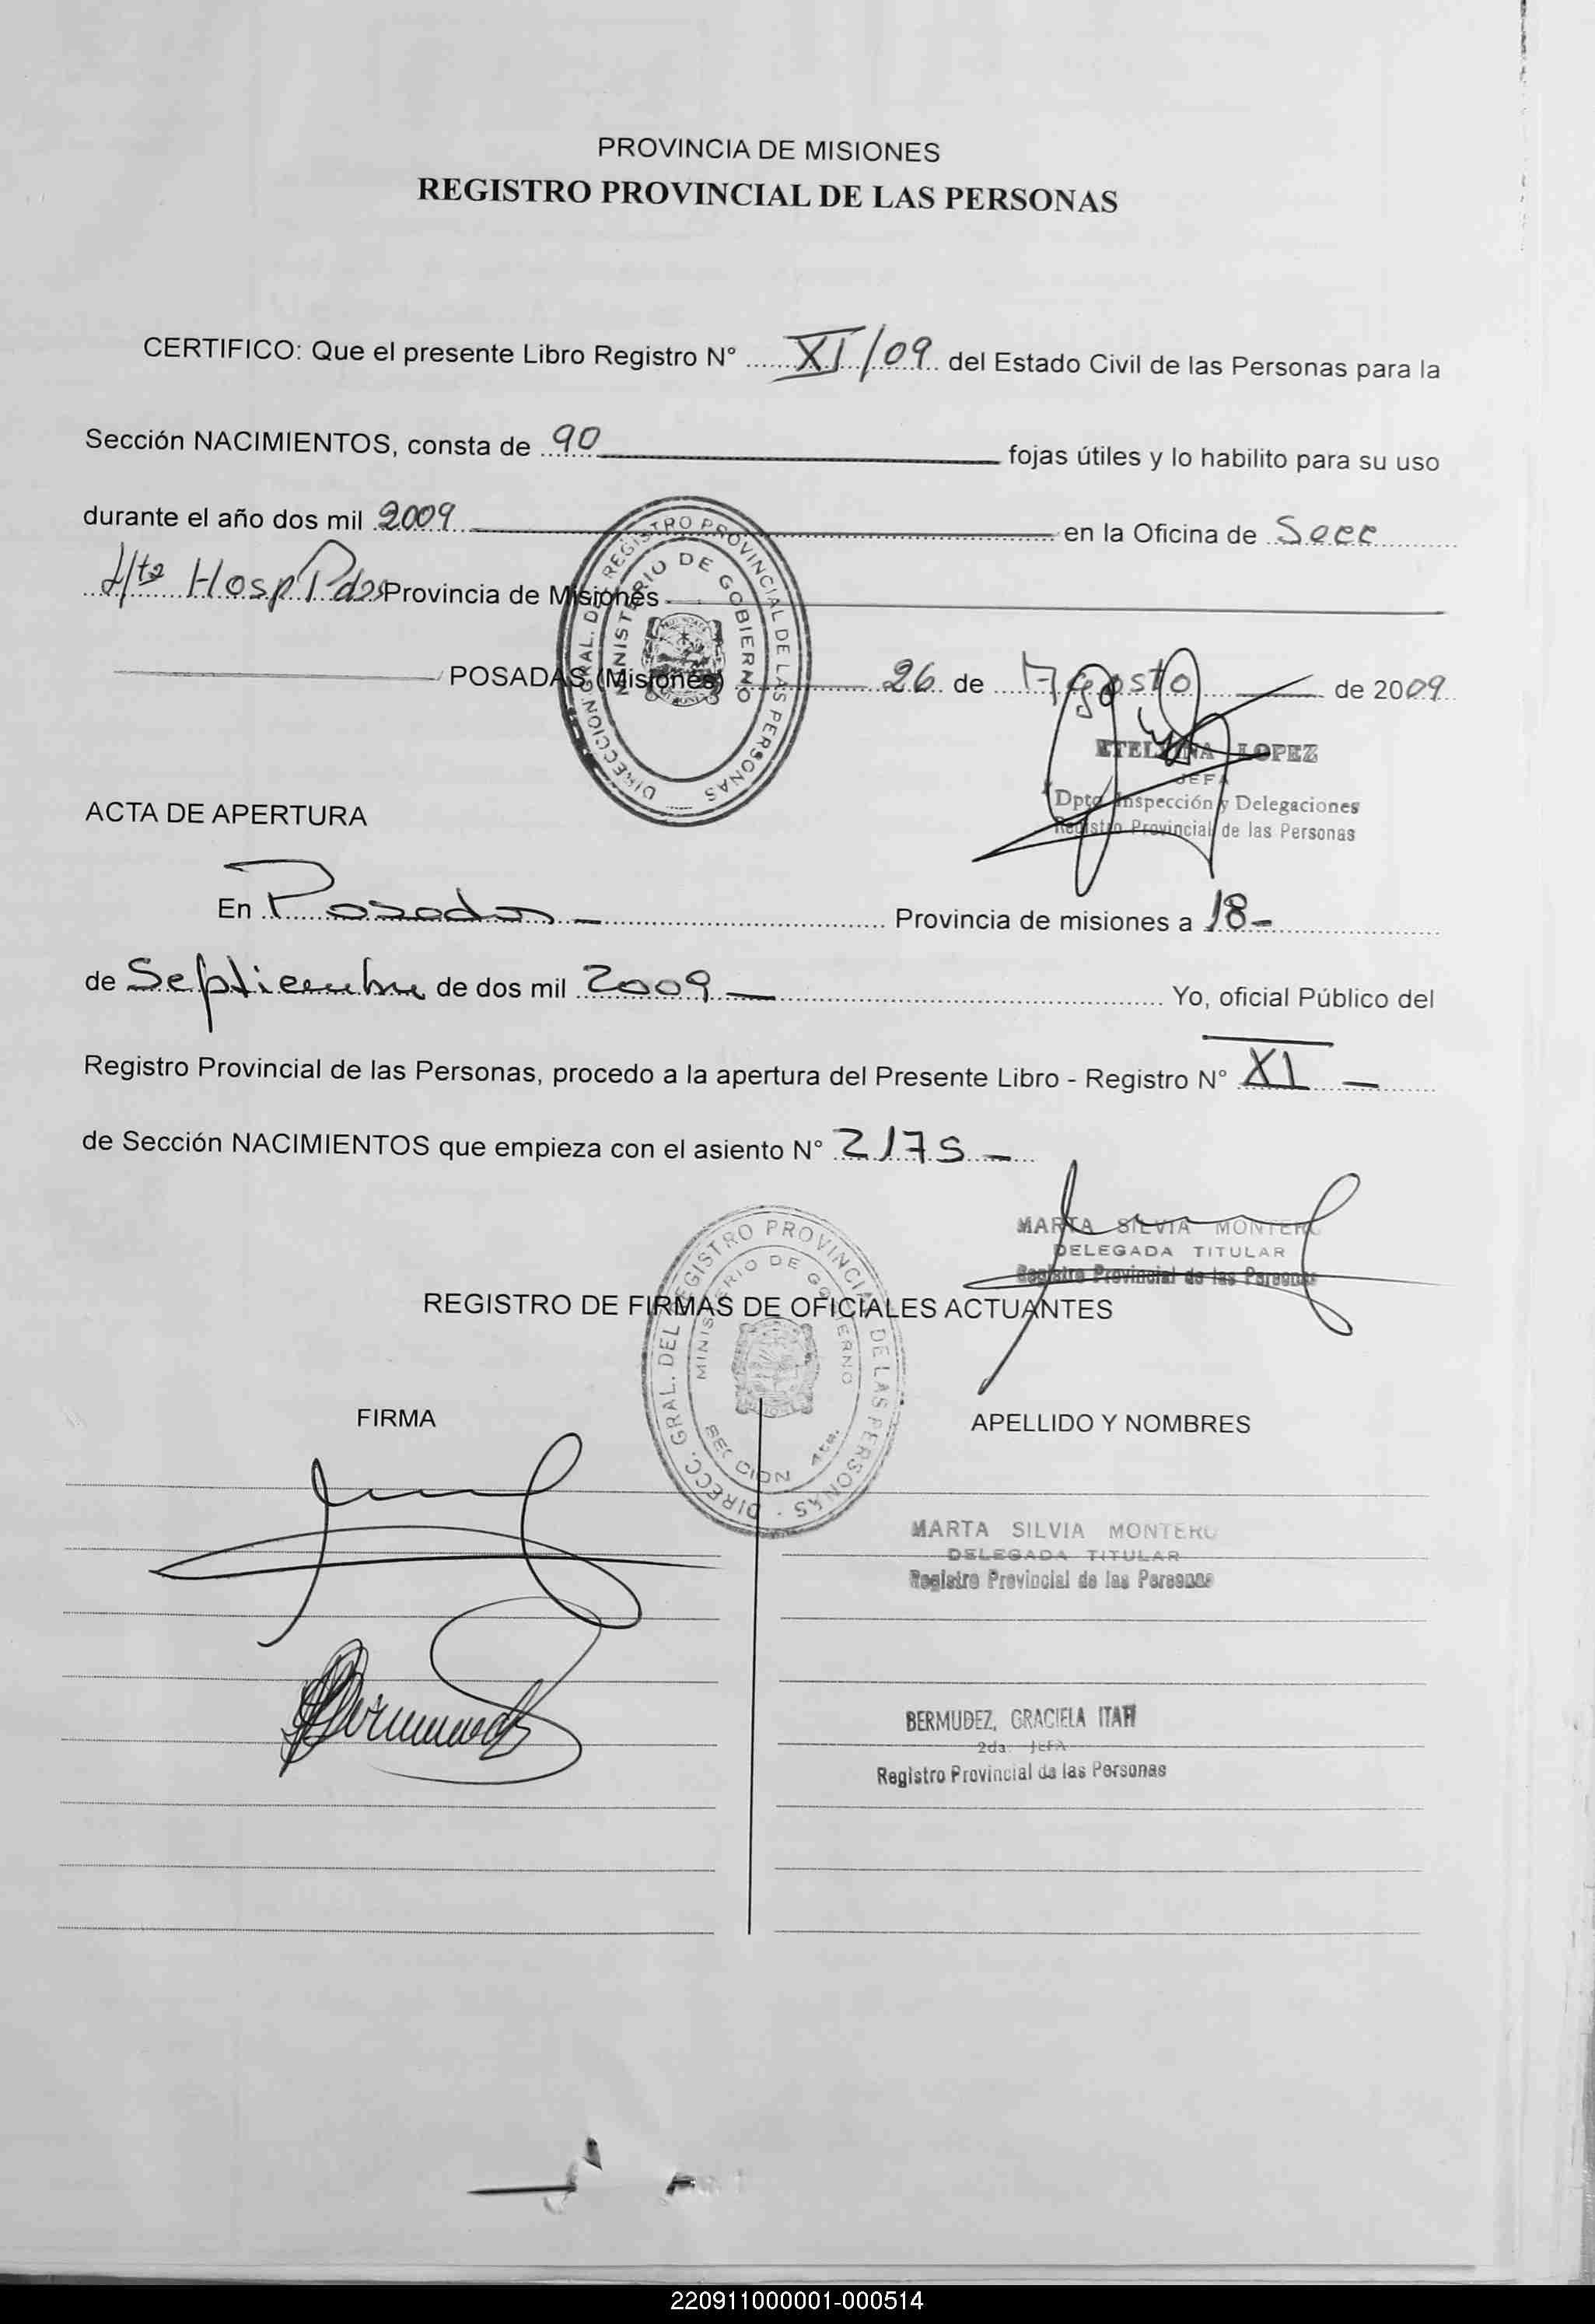 PROVINCIA DE MISIONES
REGISTRO PROVINCIAL DE LAS PERSONAS
CERTIFICO: Que el presente Libro Registro N° XI/09 del Estado Civil de las Personas para la
Sección NACIMIENTOS, consta de 90 fojas útiles y lo habilito para su uso
durante el año dos mil 2009 en la Oficina de Secc
4ta Hosp Pdas Provincia de Misiones
POSADAS (Misiones) 26 de Agosto de 2009
DIRECCION GRAL. DEL REGISTRO PROVINCIAL DE LAS PERSONAS
MINISTERIO DE GOBIERNO
ETELVINA LOPEZ
JEFA
Dpto Inspección y Delegaciones
Registro Provincial de las Personas
ACTA DE APERTURA
En Posadas - Provincia de misiones a 18-
de Septiembre de dos mil 2009 - Yo, oficial Público del
Registro Provincial de las Personas, procedo a la apertura del Presente Libro - Registro N° XI -
de Sección NACIMIENTOS que empieza con el asiento N° 2175 -
MARTA SILVIA MONTERO
DELEGADA TITULAR
Registro Provincial de las Personas
REGISTRO DE FIRMAS DE OFICIALES ACTUANTES
DIRECC. GRAL. DEL REGISTRO PROVINCIAL DE LAS PERSONAS
MINISTERIO DE GOBIERNO
SECCION 4ta.
FIRMA APELLIDO Y NOMBRES
MARTA SILVIA MONTERO
DELEGADA TITULAR
Registro Provincial de las Personas
BERMUDEZ, GRACIELA ITATI
2da. JEFA
Registro Provincial de las Personas
220911000001-000514